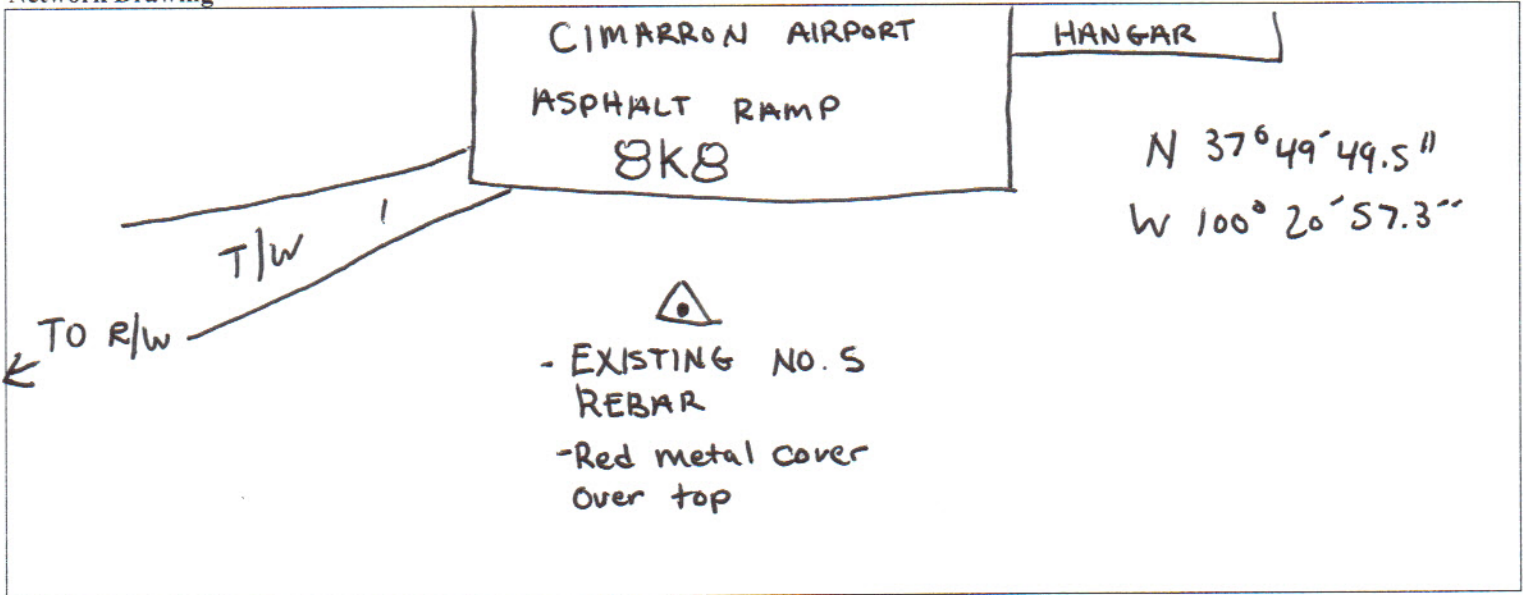 Network Drawing
CIMARRON AIRPORT
HANGAR
ASPHALT RAMP
8K8
N 37° 49' 49.5"
W 100° 20' 57.3"
T/W
TO R/W
- EXISTING NO. 5
REBAR
- Red metal cover
over top